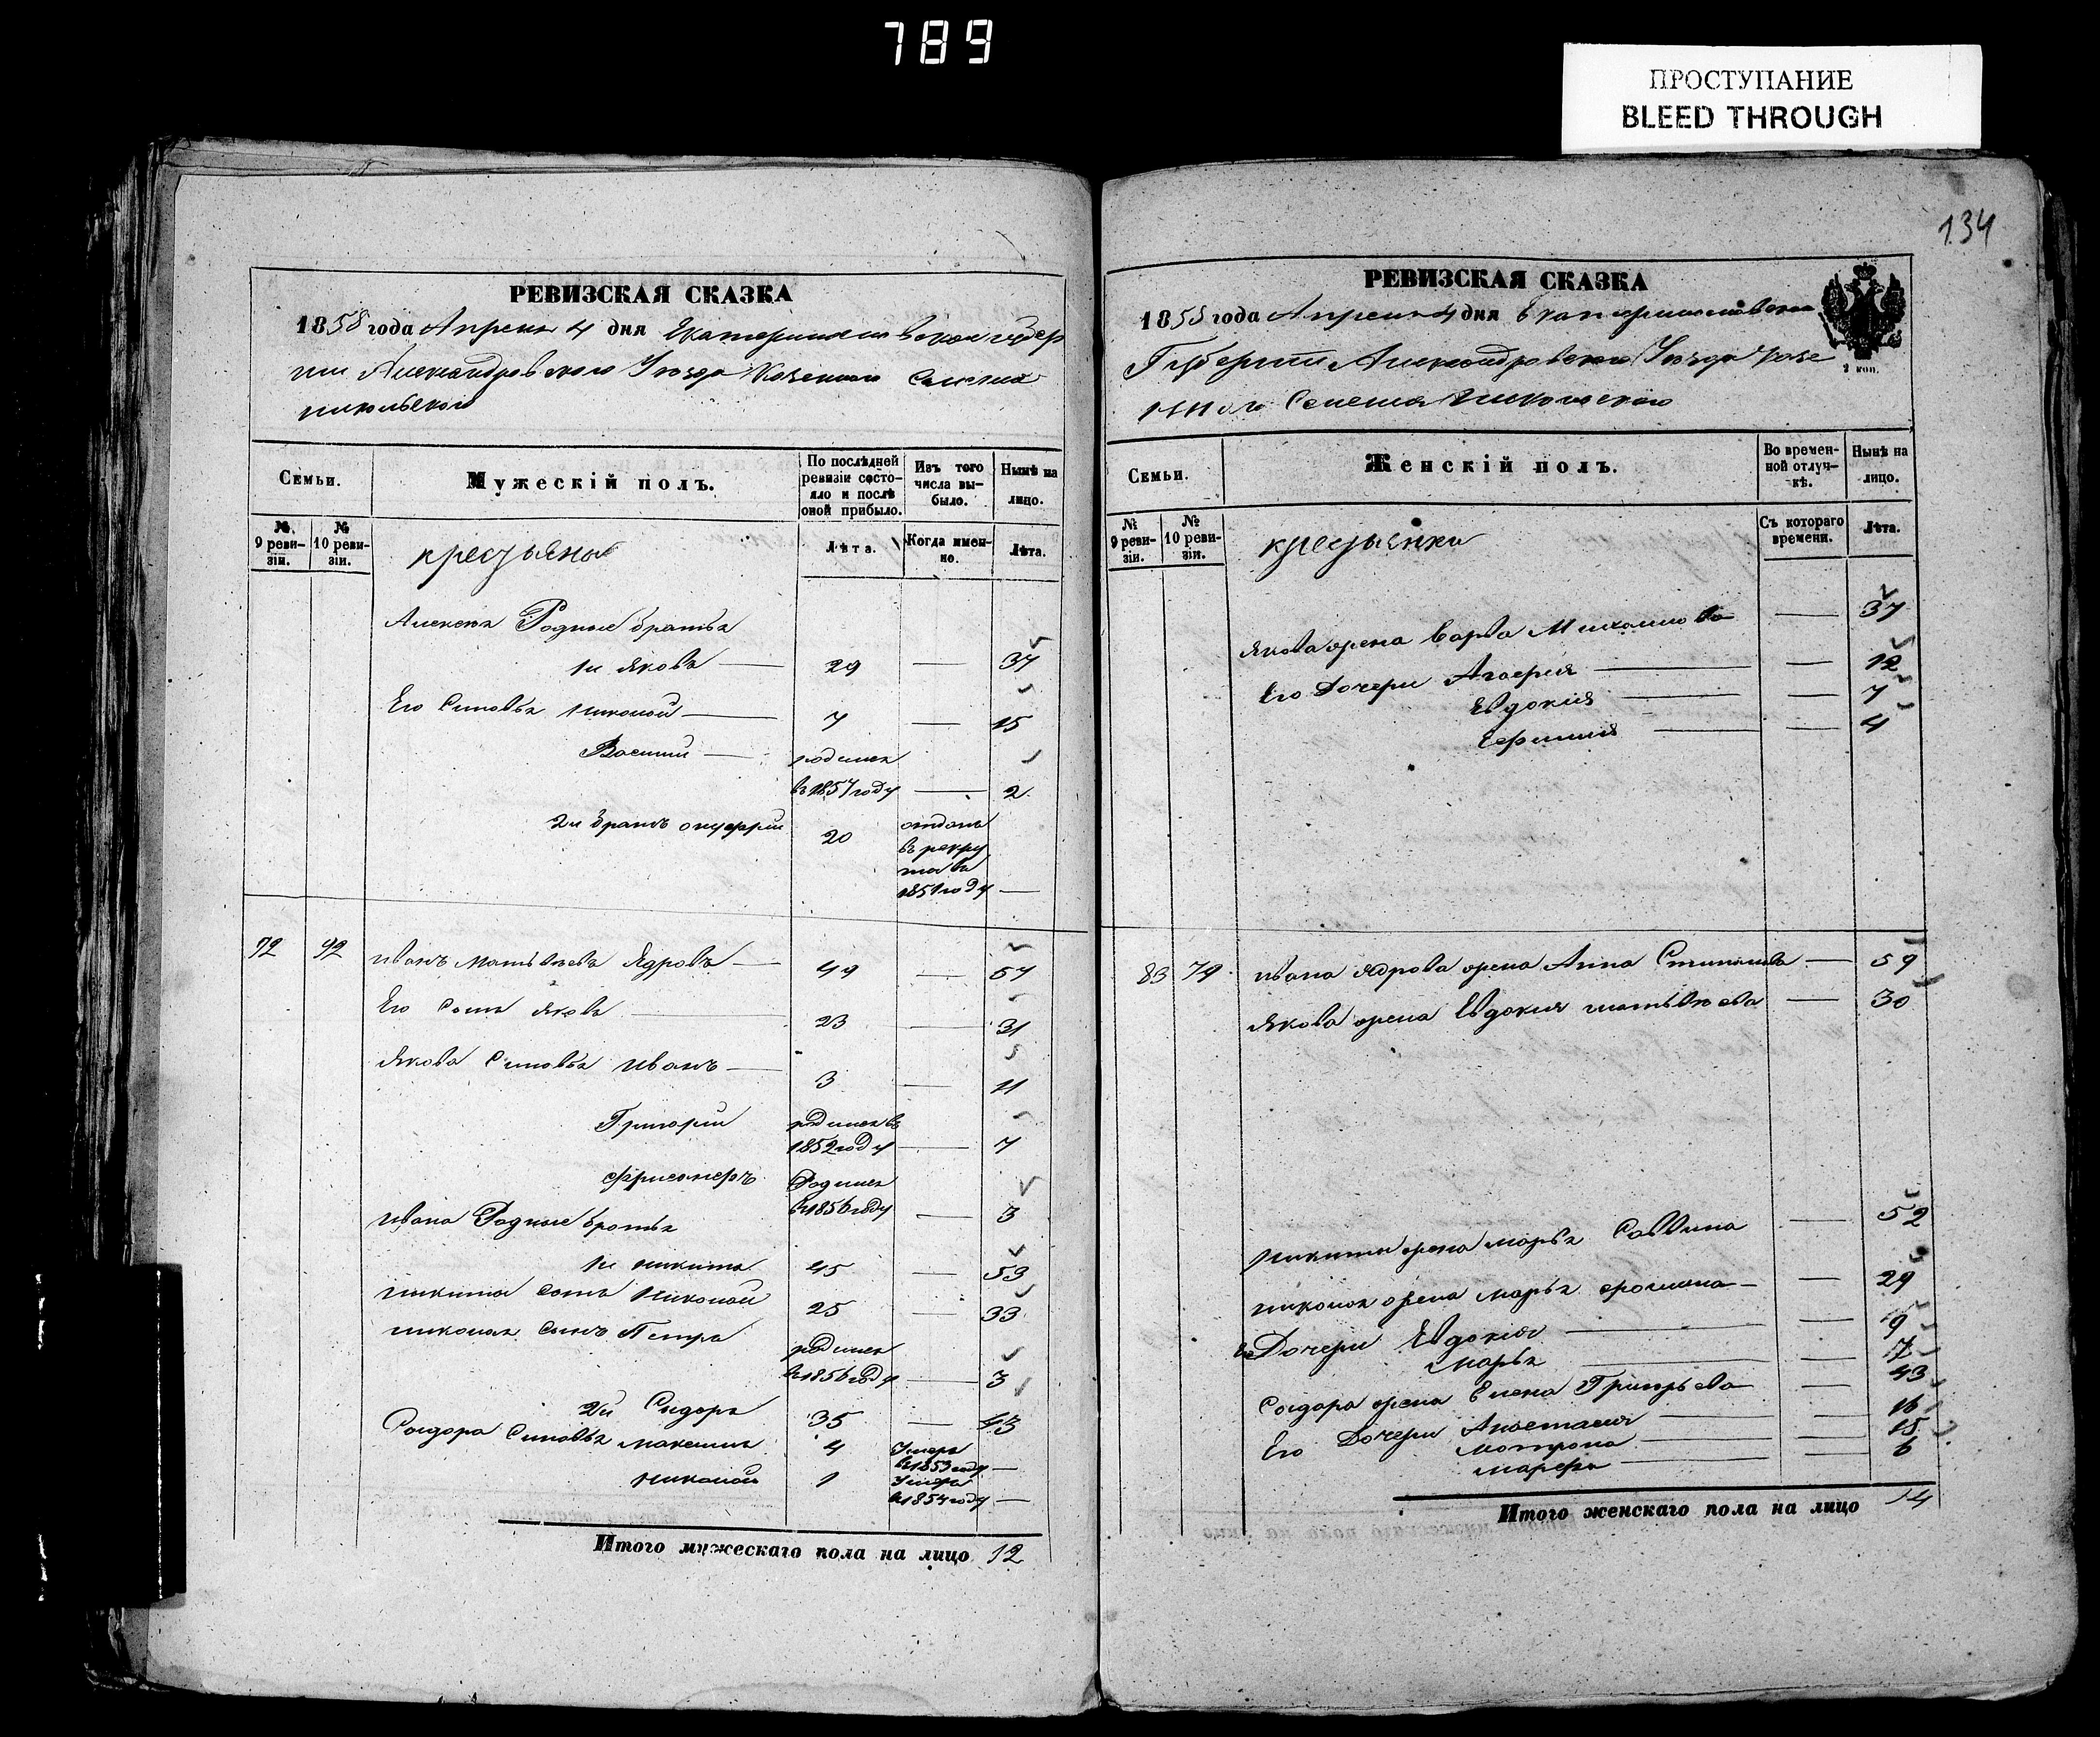 789
ПРОСТУПАНИЕ
BLEED THROUGH
134
РЕВИЗСКАЯ СКАЗКА
1858 года Апреля 4 дня Екатеринославской губер
нии Александровского Уезда Казенного Селения
Никольского
Семьи.
Мужескій полъ.
По послѣдней ревизіи состояло и послѣ оной прибыло.
Изъ того числа выбыло.
Нынѣ на лицо.
№ 9 ревизіи.
№ 10 ревизіи.
крестьяне
Лѣта.
Когда именно.
Лѣта.
Алексея Родные братья
1й Яковъ 29 37
Его Сыновья Николай 7 15
Василий родился
въ 1857 году 2
2й братъ Онуфрий 20 отданъ
въ рекру
та въ
1851 году
72 92 Иванъ Матвеевъ Ядровъ 49 57
Его Сынъ Яковъ 23 31
Якова Сыновья Иванъ 3 11
Григорий родился въ
1852 году 7
Родился
въ 1856 году 3
Ивана Родные братья
1й Никита 45 53
Никиты Сынъ Николай 25 33
Николая Сынъ Петръ родился
въ 1856 году 3
2й Сидоръ 35 43
Сидора Сыновья Максимъ 4 Умеръ
въ 1853 году
Николай 1 Умеръ
въ 1854 году
Итого мужескаго пола на лицо 12
РЕВИЗСКАЯ СКАЗКА
1858 года Апреля 4 дня Екатеринославской
Губернии Александровского Уезда Казе
нного Селения Никольского
2 коп.
Семьи.
Женскій полъ.
Во временной отлучкѣ.
Нынѣ на лицо.
№ 9 ревизіи.
№ 10 ревизіи.
крестьянки
Съ котораго времени.
Лѣта.
Якова жена Варва Михайлова 37
Его Дочери Агафия 12
Евдокия 7
Ефимия 4
83 79 Ивана Ядрова жена Анна Степанова 59
Якова жена Евдокия Матвеева 30
Никиты жена Марья Саввина 52
Николая жена Марья Фомина 29
Его Дочери Евдокия 9
Марья 7
Сидора жена Елена Григорьева 43
Его Дочери Анастасия 16
Матрона 15
Марфа 6
Итого женскаго пола на лицо 14